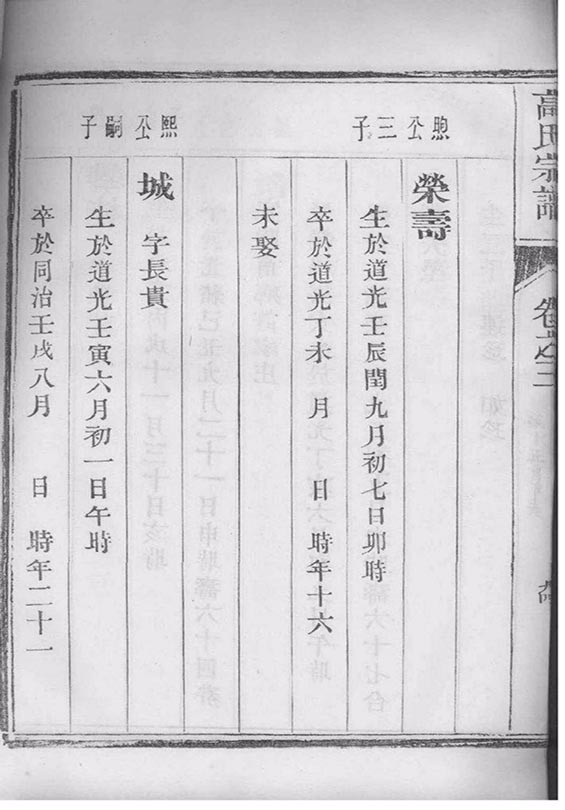 高氏宗譜
卷之三
煦公三子
榮壽
生於道光壬辰閏九月初七日卯時
卒於道光丁未 月 日 時年十六
未娶
熙公嗣子
城 字長貴
生於道光壬寅六月初一日午時
卒於同治壬戌八月 日 時年二十一